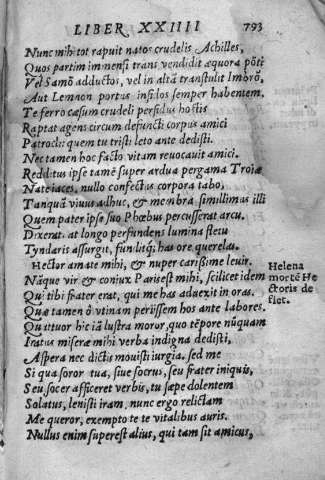 LIBER XXIIII 793
Nunc mihi tot rapuit natos crudelis Achilles,
Quos partim immensi trans vendidit æquora pōti
Vel Samō adductos, vel in altā transtulit Imbrō,
Aut Lemnon portus infidos semper habentem.
Te ferro cæsum crudeli perfidus hostis
Raptat agens circum defuncti corpus amici
Patrocli: quem tu tristi leto ante dedisti.
Nec tamen hoc facto vitam reuocauit amici.
Redditus ipse tamē super ardua pergama Troiæ
Nate iaces, nullo confectus corpora tabo,
Tanquā viuus adhuc, & membra simillimus illi
Quem pater ipse suo Phœbus percusserat arcu.
Dixerat. at longo perfundens lumina fletu
Tyndaris assurgit, funditq; has ore querelas.
Hector amate mihi, & nuper carissime leuir.
Nāque vir & coniux Paris est mihi, scilicet idem
Qui tibi frater erat, qui me has aduexit in oras.
Quæ tamen ō vtinam perissem hos ante labores.
Quattuor hic iā lustra moror, quo tēpore nūquam
Iratus miseræ mihi verba indigna dedisti,
Aspera nec dictis mouisti iurgia. sed me
Si qua soror tua, siue socrus, seu frater iniquis,
Seu socer afficeret verbis, tu sæpe dolentem
Solatus, lenisti iram, nunc ergo relictam
Me queror, exempto te te vitalibus auris.
Nullus enim superest alius, qui tam sit amicus,
Helena
mortē He
ctoris de
flet.